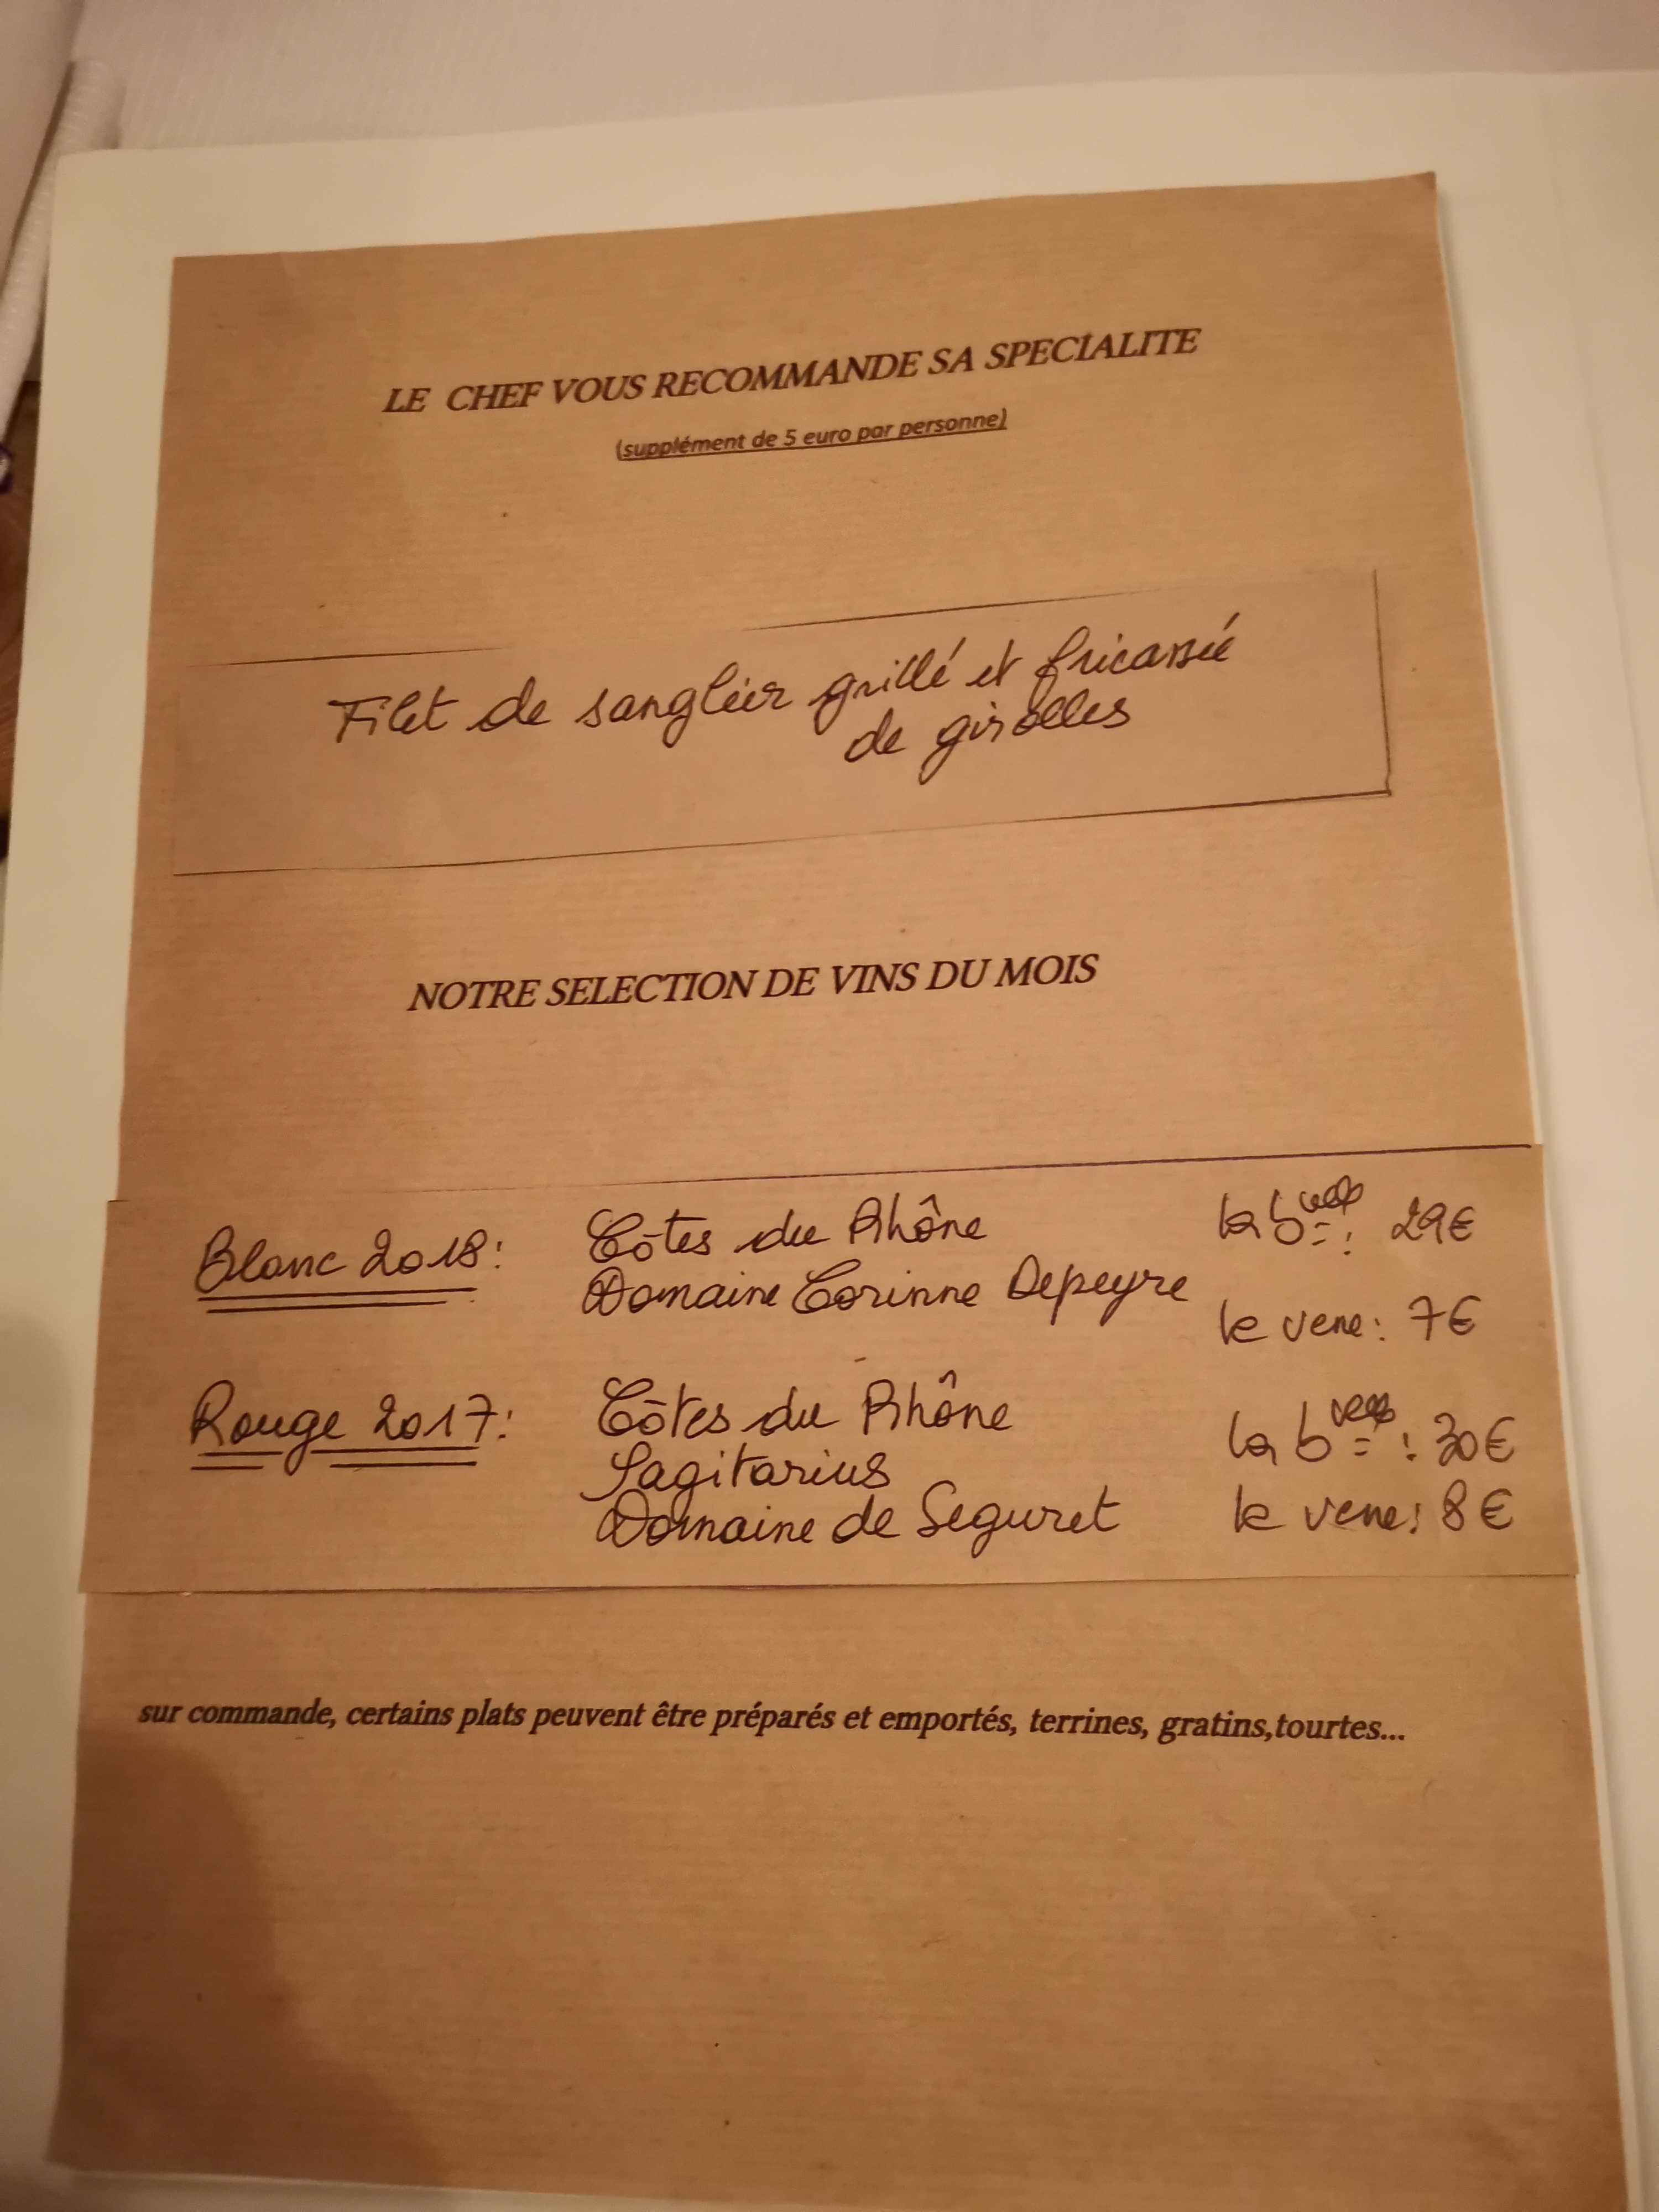 LE CHEF VOUS RECOMMANDE SA SPECIALITE
(supplément de 5 euro par personne)
Filet de sanglier grillé et fricassée
de girolles
NOTRE SELECTION DE VINS DU MOIS
Blanc 2018: Côtes du Rhône la blle: 29€
Domaine Corinne Depeyre
le verre: 7€
Rouge 2017: Côtes du Rhône
Sagitarius la blle: 30€
Domaine de Seguret le verre: 8€
sur commande, certains plats peuvent être préparés et emportés, terrines, gratins,tourtes...